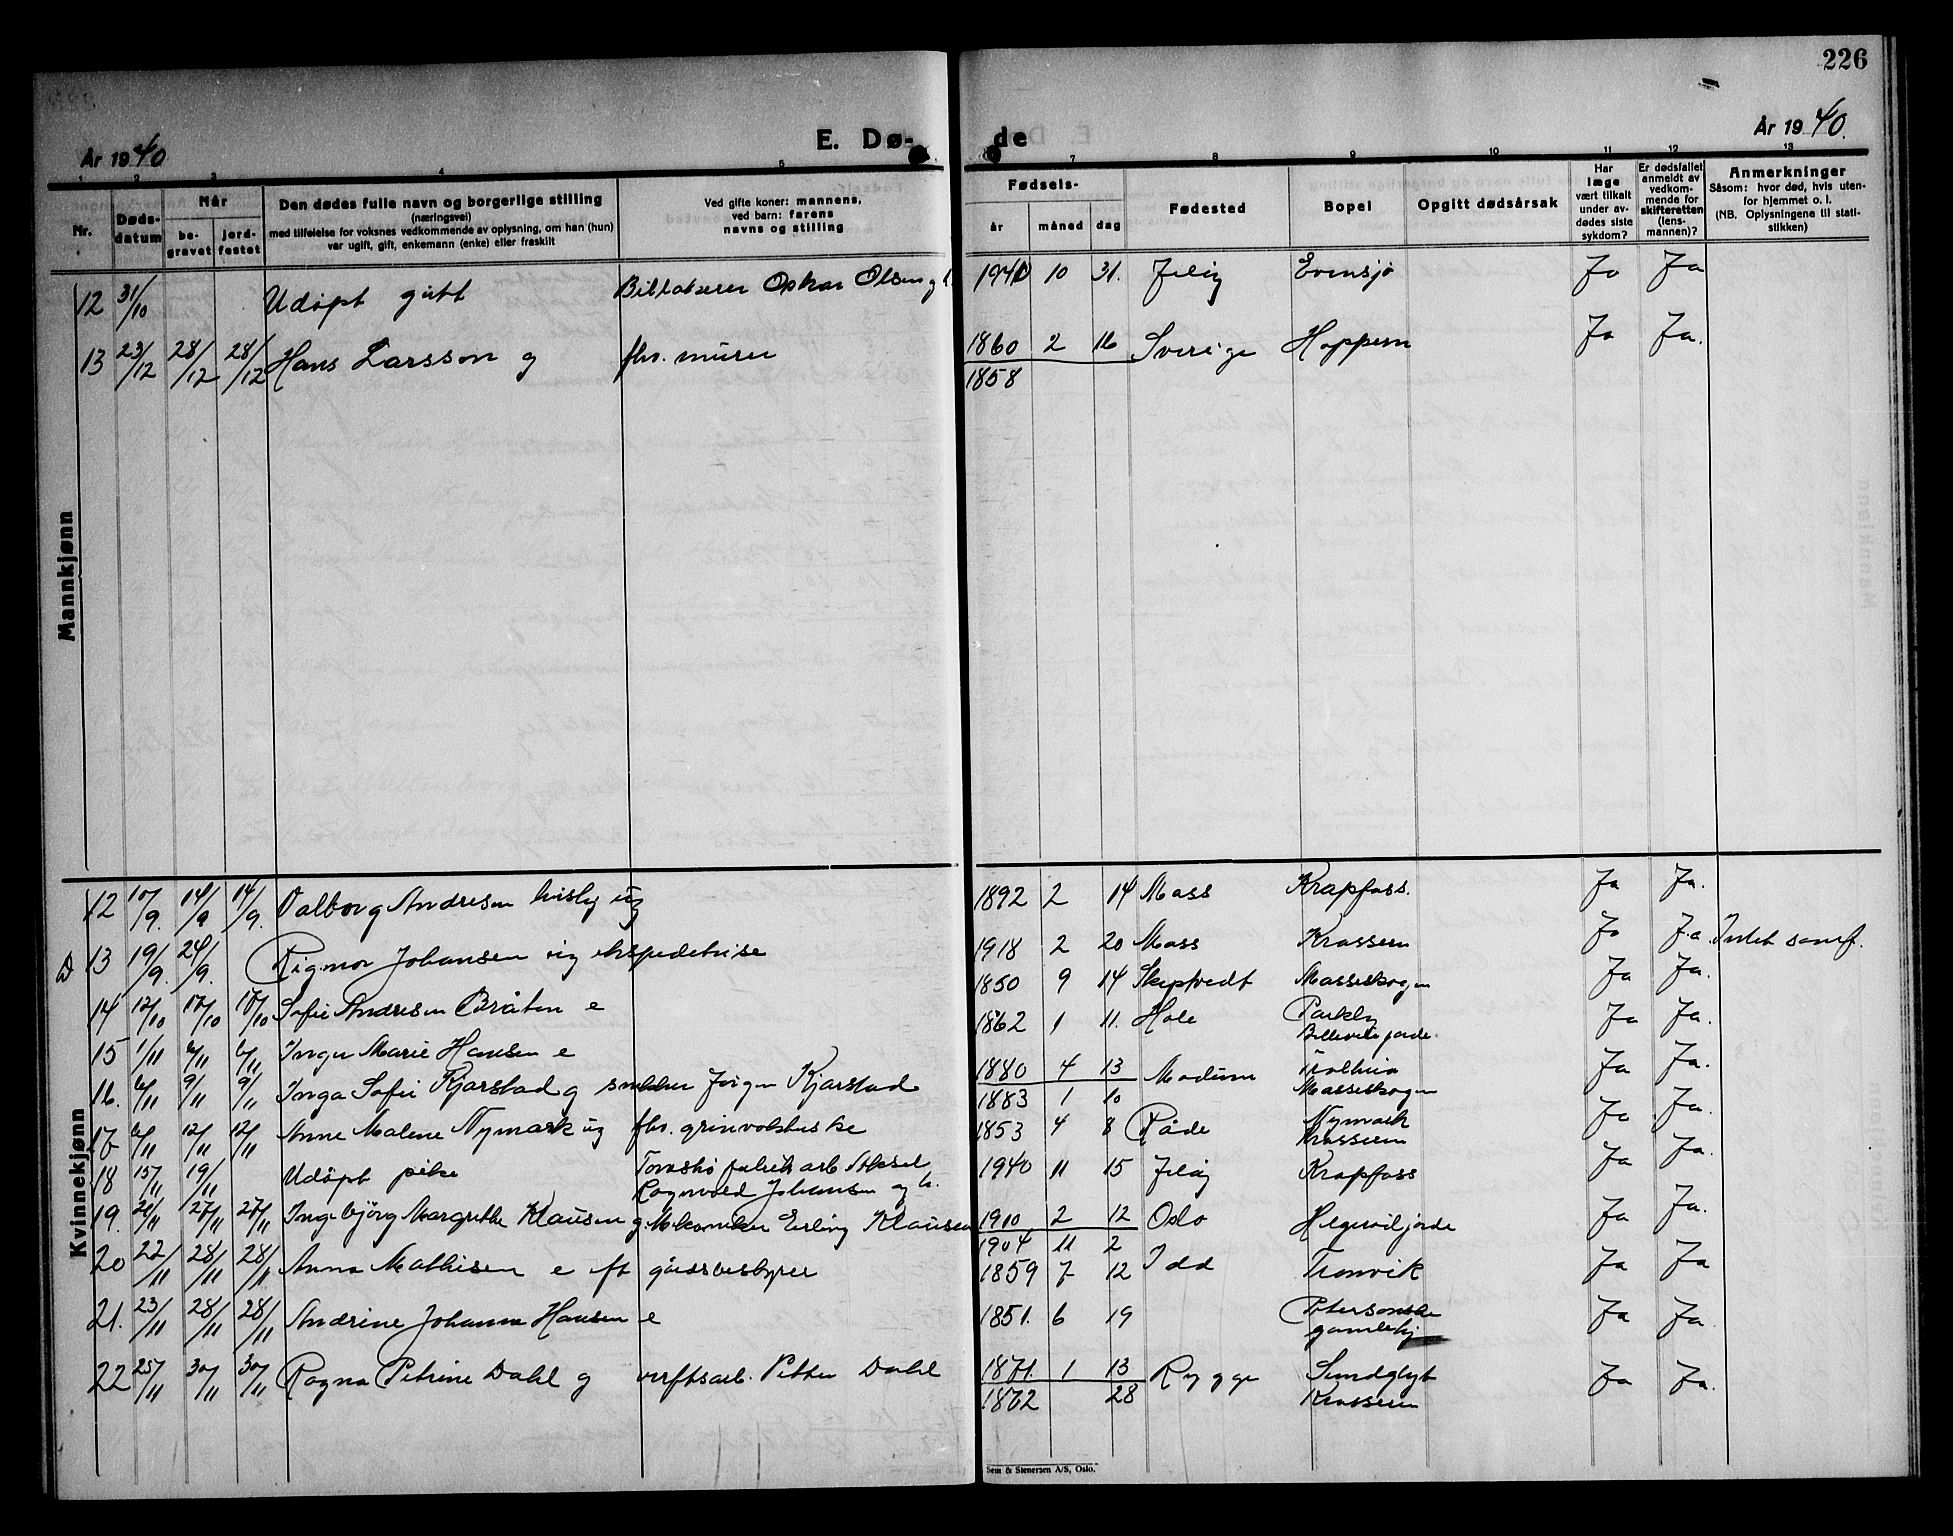 226
År 1940
E. Dø-
de
År 1940.
1 2 3 4 5 7 8 9 10 11 12 13
Nr.
Døds-
datum
Når
be-
gravet
jord-
festet
Den dødes fulle navn og borgerlige stilling
(næringsvei)
med tilføielse for voksnes vedkommende av oplysning, om han (hun)
var ugift, gift, enkemann (enke) eller fraskilt
Ved gifte koner: mannens,
ved barn: farens
navns og stilling
Fødsels-
år
måned
dag
Fødested
Bopel
Opgitt dødsårsak
Har
læge
vært tilkalt
under av-
dødes siste
sykdom?
Er dødsfallet
anmeldt av
vedkom-
mende for
skifteretten
(lens-
mannen)?
Anmerkninger
Såsom: hvor død, hvis uten-
for hjemmet o. l.
(NB. Oplysningene til stati-
stikken)
Mannkjønn
12 31/10 Udøpt gutt Oskar Olsen 1940 10 31. Jeløy Evensjø Ja Ja
13 23/12 28/12 28/12 Hans Larsson g fhv. murer 1860 2 16 Sverige Hoppern Ja Ja.
1858
Kvinnekjønn
12 10/9. 14/9 14/9. Valborg Andresen ug 1892 2 14 Moss Krapfoss. Ja Ja.
13 19/9. 24/9. Rigmor Johansen ug ekspeditrise 1918 2 20 Moss Krossern Ja Ja Intet samf.
14 12/10 17/10 17/10 Sofie Andresen Bråten e 1850 9 14 Skiptvedt Mosseskogen Ja Ja.
15 1/11 6/11 6/11 Inger Marie Hansen e 1862 1 11. Hole Parkly Ja Ja.
Bellevuejorde.
16. 6/11 9/11 9/11 Inga Sofie Kjarstad g snekker Jørgen Kjarstad 1880 4 13 Modum Ja Ja.
1883 1 10 Mosseskogen
17 6/11 12/11 12/11 Anne Malene Nymark ug fhv. 1853 4 8 Råde Nymark Ja Ja.
Krossern
18 15/11 19/11 Udøpt pike 1940 11 15 Jeløy Krapfoss Ja Ja.
Ragnvald Johansen og h.
19. 21/11 27/11 27/11 Ingebjørg Margrethe Klausen g. Mekaniker Erling Klausen 1910 2 12 Oslo Ja Ja.
1904 11 2
20 22/11 28/11 28/11 Anna Mathisen e eft gårdsbestyrer 1859 7 12 Idd Tronvik Ja Ja
21. 23/11 28/11 28/11 Andrine Johanne Hansen e 1851. 6 19 Petersonske Ja Ja
gamlehj
22 25/11 30/11 30/11 Ragna Petrine Dahl g verftsarb. Petter Dahl 1871. 1 13 Rygge Sundgløt Ja Ja.
1862 28 Krossern
Sem & Stenersen A/S, Oslo.